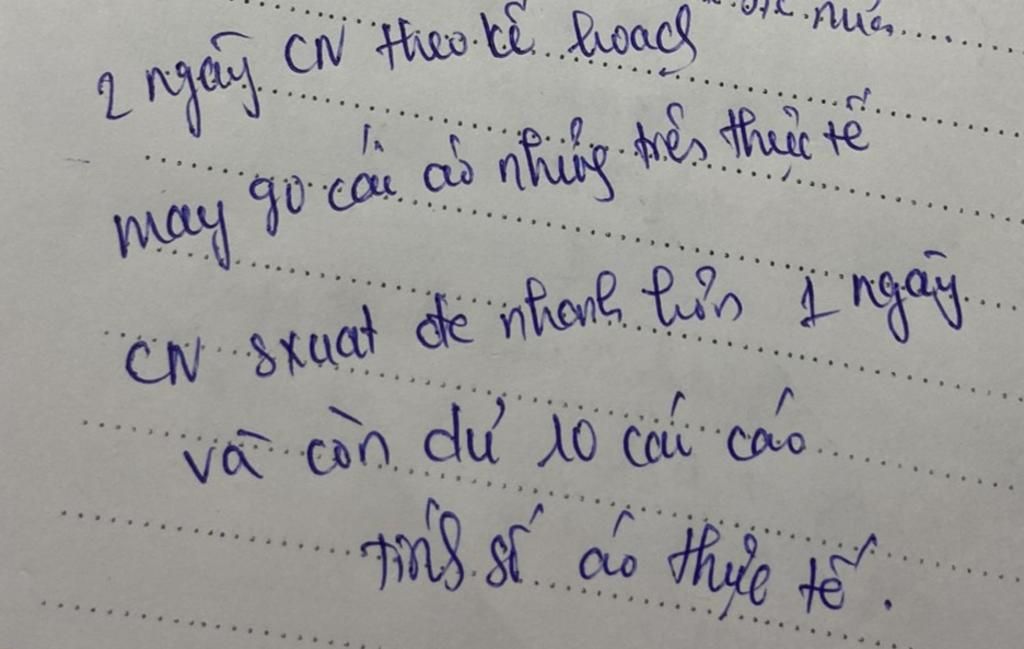 2 ngày CN theo kế hoạch
may 90 cái áo nhưng trên thực tế
CN sxuat đc nhanh hơn 1 ngày
và còn dư 10 cái cáo
tính số áo thực tế.